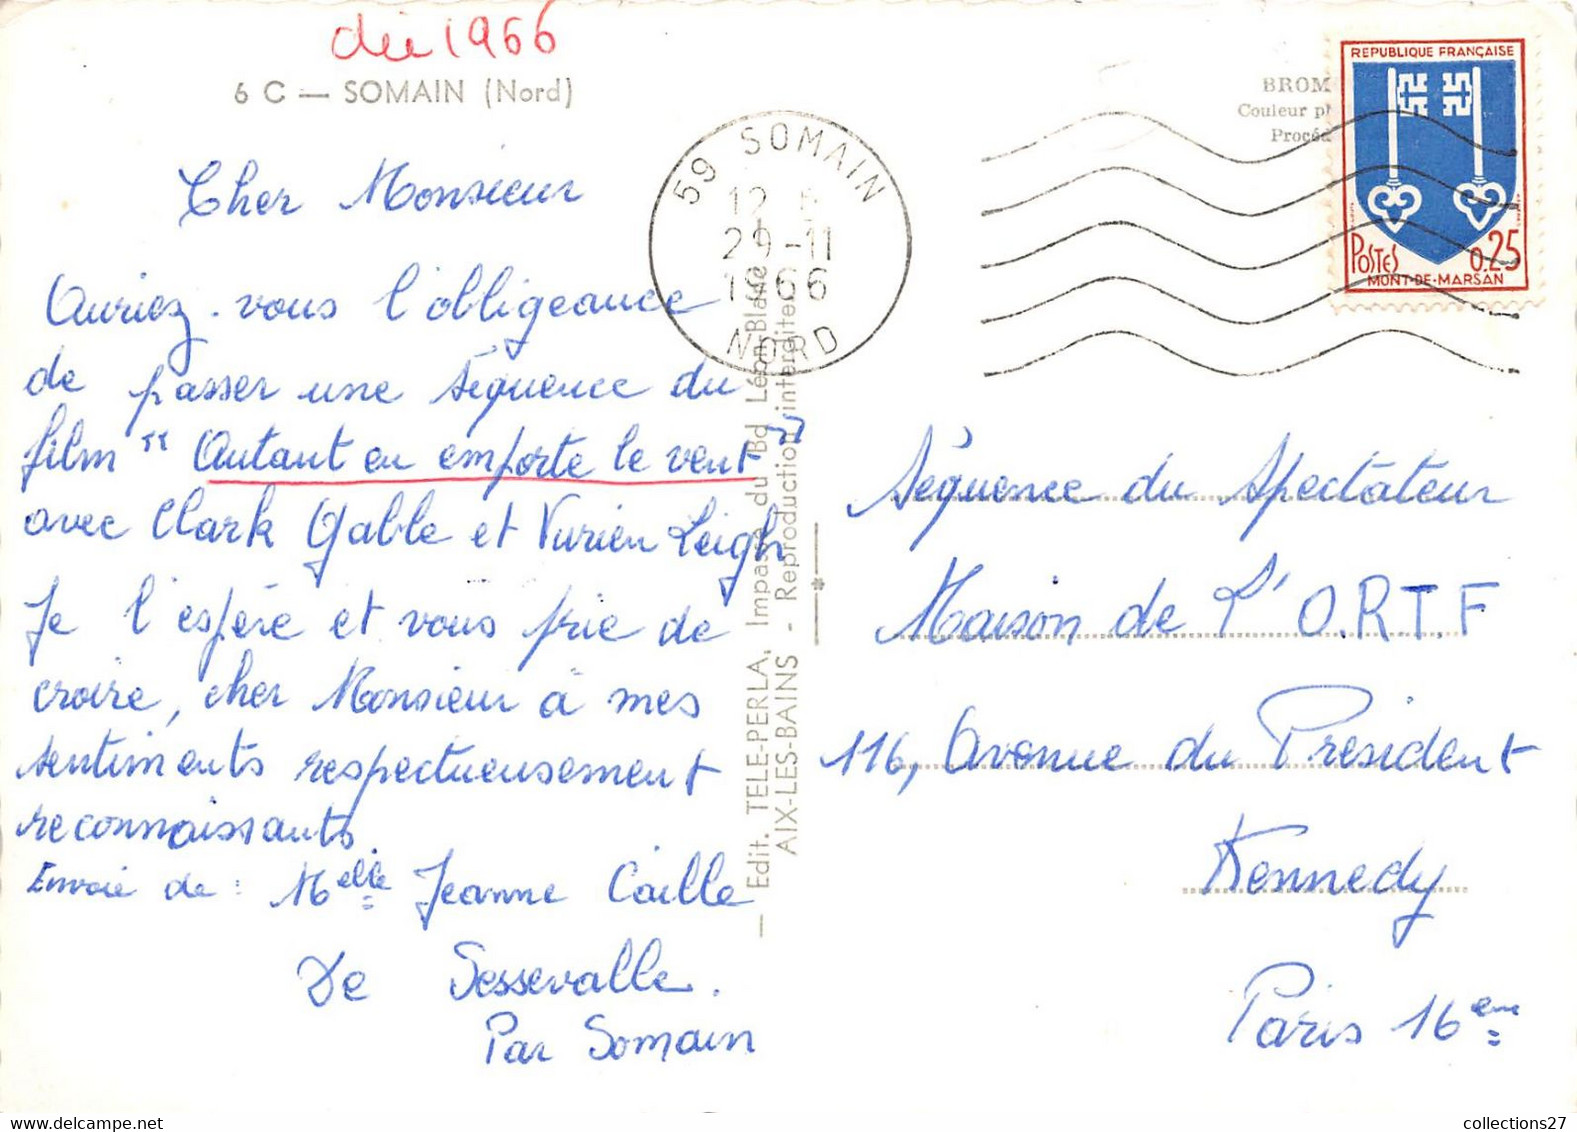 dec 1966
6 C — SOMAIN (Nord)
Cher Monsieur
Auriez-vous l'obligeance
de passer une séquence du
film "Autant en emporte le vent"
avec Clark Gable et Vivien Leigh
Je l'espère et vous prie de
croire, cher Monsieur à mes
sentiments respectueusement
reconnaissants.
Envoie de : Melle Jeanne Caille
De Sessevalle.
Par Somain
— Edit. TELE-PERLA, Impasse du Bd Léon-Blanc
AIX-LES-BAINS - Reproduction interdite
59 SOMAIN
29-11
1966
NORD
BROM
Couleur
Procéd
REPUBLIQUE FRANÇAISE
POSTES 0.25
MONT-DE-MARSAN
Séquence du Spectateur
Maison de L'O.R.T.F
116, Avenue du Président
Kennedy
Paris 16eme
collections27